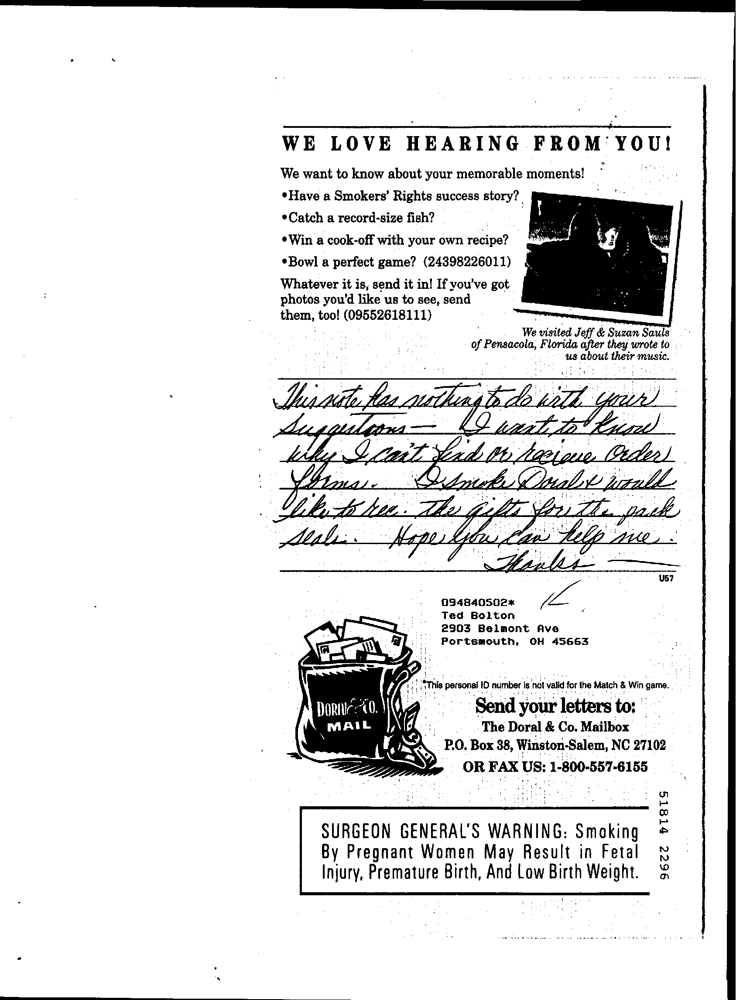 WE LOVE HEARING FROM YOU!
We want to know about your memorable moments!
•Have a Smokers' Rights success story?
•Catch a record-size fish?
•Win a cook-off with your own recipe?
•Bowl a perfect game? (24398226011)
Whatever it is, send it in! If you've got
photos you'd like us to see, send
them, too! (09552618111)
We visited Jeff & Suzan Sauls
of Pensacola, Florida after they wrote to
us about their music.
This note has nothing to do with your
suggestions – I want to know
why I can't find or recieve order
forms. I smoke Doral & would
like to rec. the gifts for the pack
seals. Hope you can help me.
Thanks —
U57
094840502*
Ted Bolton
2903 Belmont Ave
Portsmouth, OH 45663
*This personal ID number is not valid for the Match & Win game.
DORAL & CO.
MAIL
Send your letters to:
The Doral & Co. Mailbox
P.O. Box 38, Winston-Salem, NC 27102
OR FAX US: 1-800-557-6155
51814 2296
SURGEON GENERAL'S WARNING: Smoking
By Pregnant Women May Result in Fetal
Injury, Premature Birth, And Low Birth Weight.